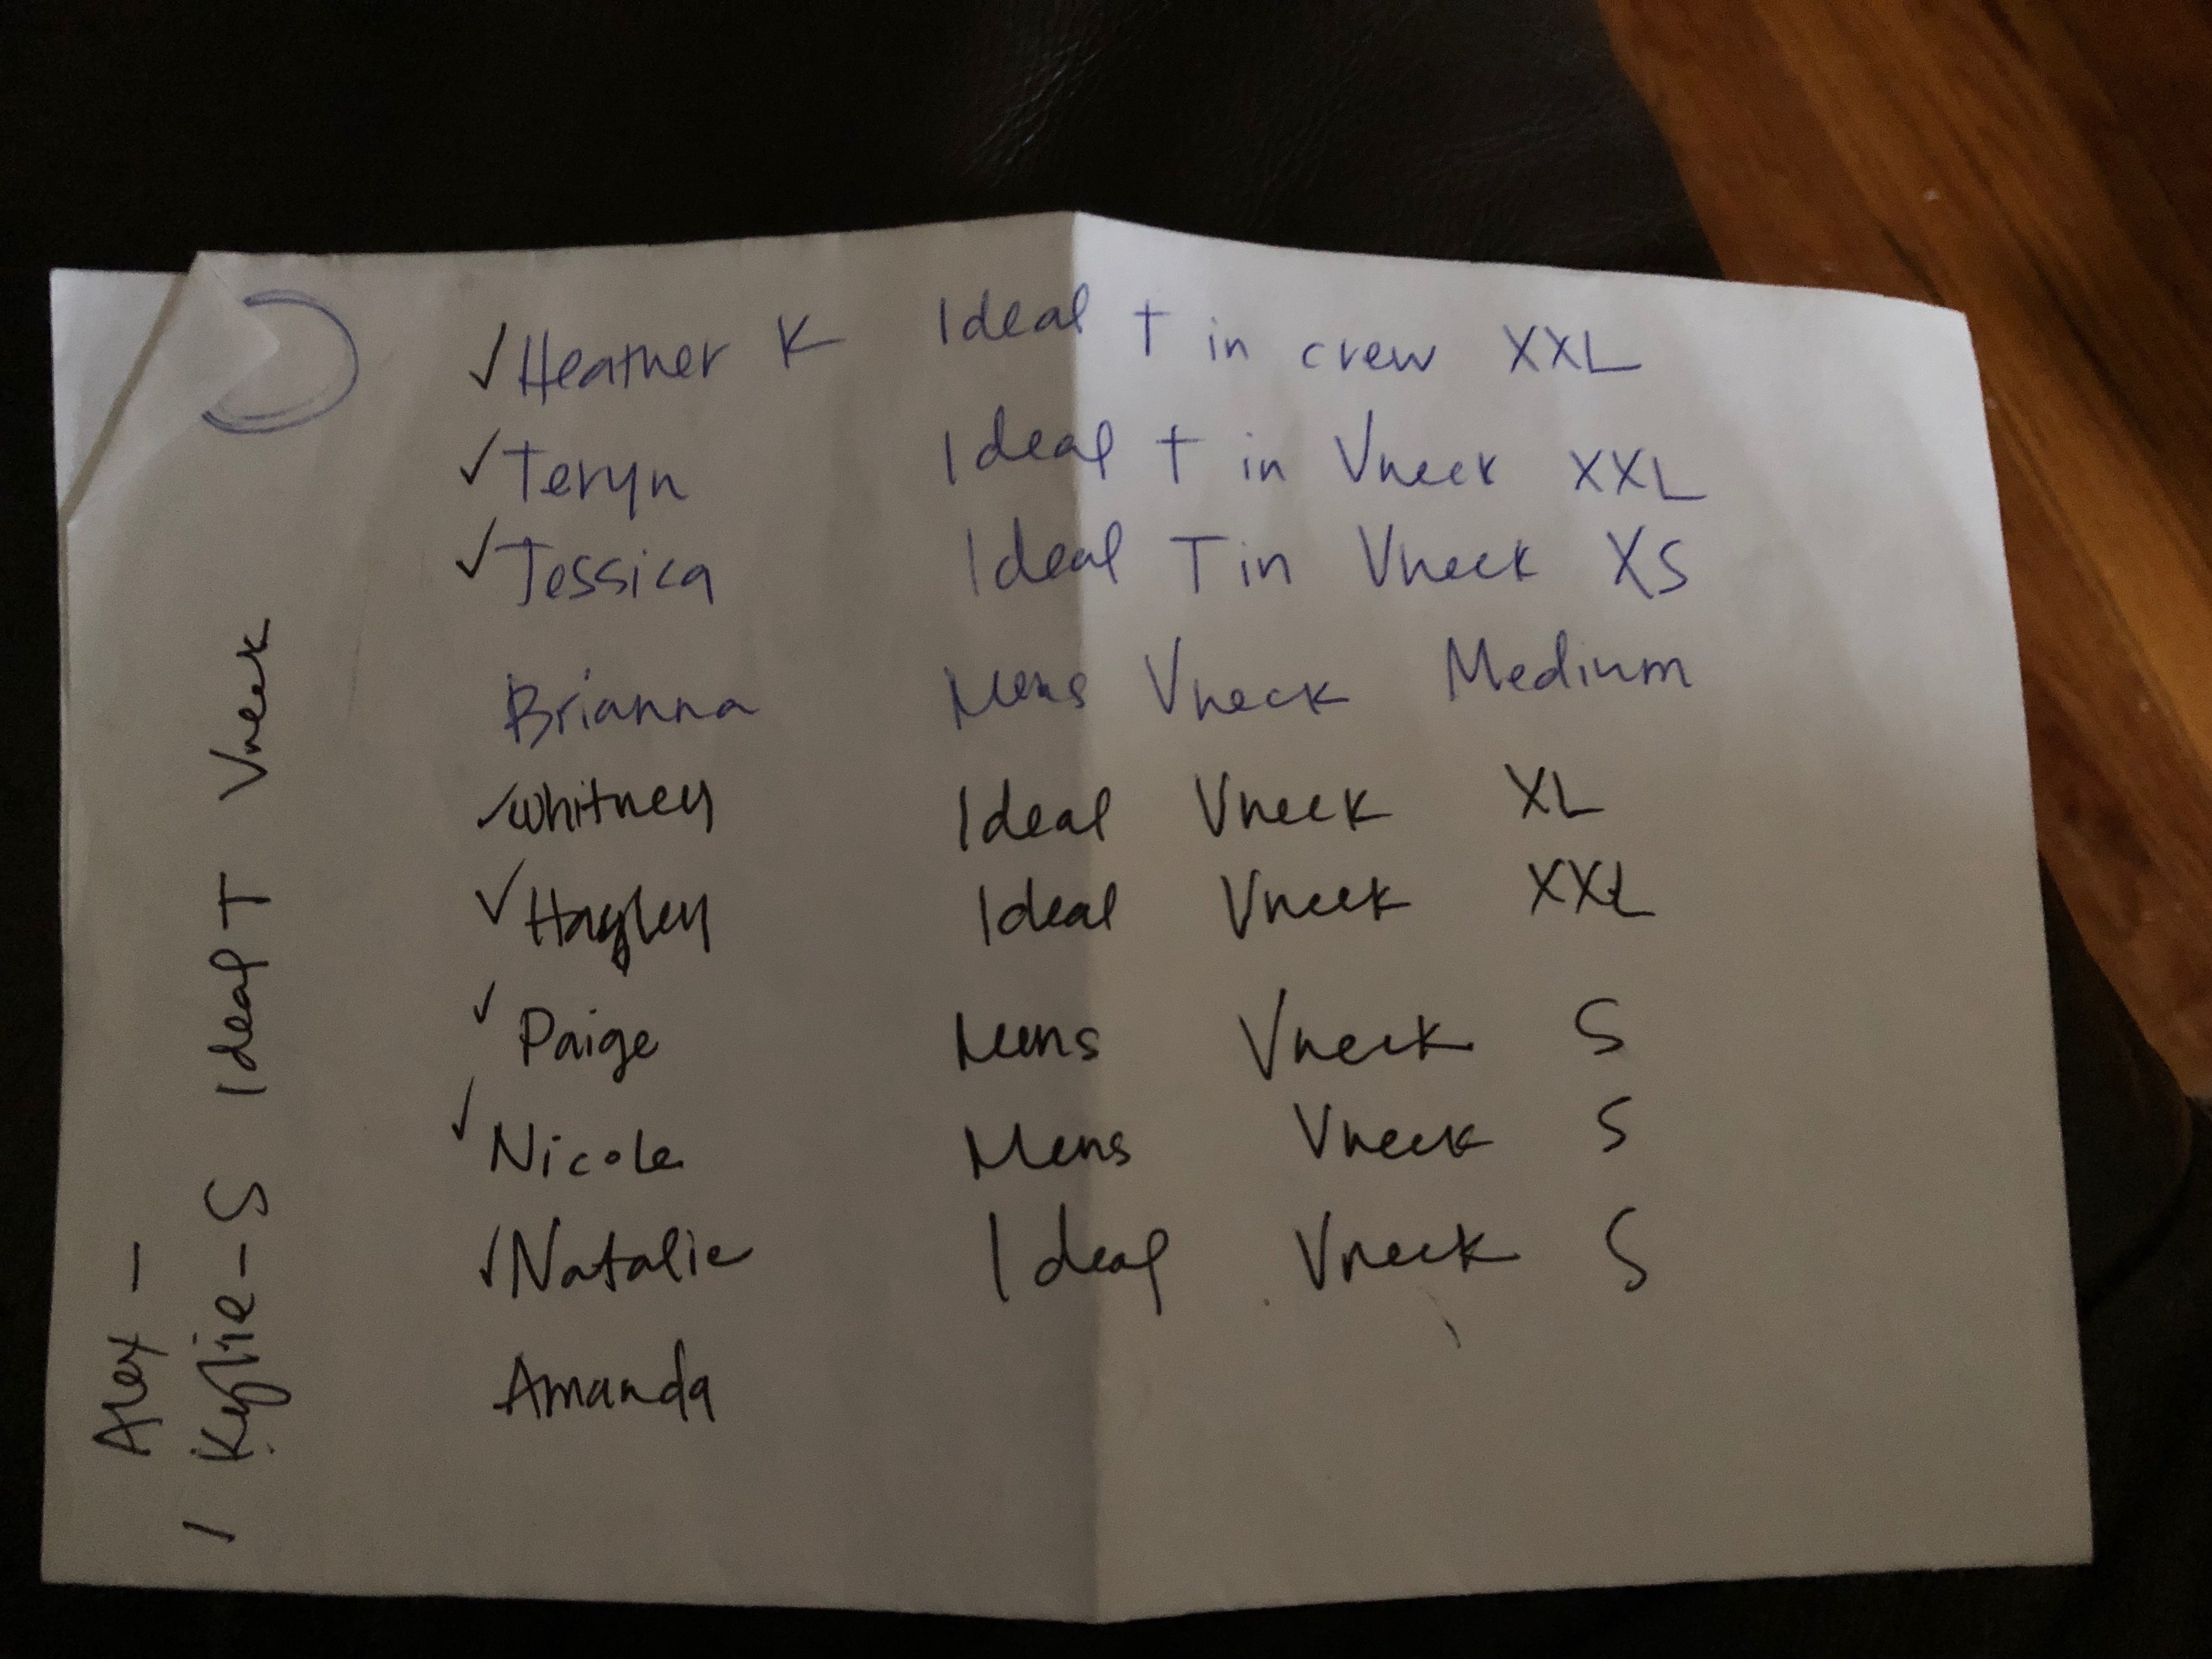 ✓ Heather K Ideal t in crew XXL
✓ Teryn Ideal t in Vneck XXL
✓ Jessica Ideal T in Vneck XS
Brianna Mens Vneck Medium
✓ Whitney Ideal Vneck XL
✓ Hayley Ideal Vneck XXL
✓ Paige Mens Vneck S
✓ Nicole Mens Vneck S
✓ Natalie Ideal Vneck S
Amanda
Alex -
/ Kylie - S Ideal T Vneck